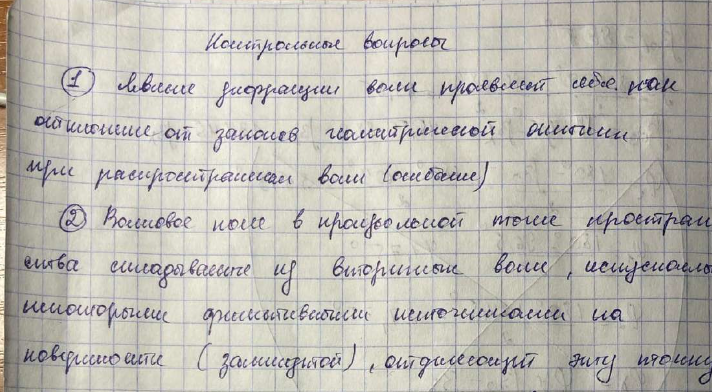 Контрольные вопросы
① Явление дифракции волн проявляет себя как
отклонение от законов геометрической оптики
при распространении волн (огибание)
② Волновое поле в произвольной точке простран
ства складывается из вторичных волн, испускаемых
некоторыми фиктивными источниками на
поверхности (замкнутой), отделяющей эту точку